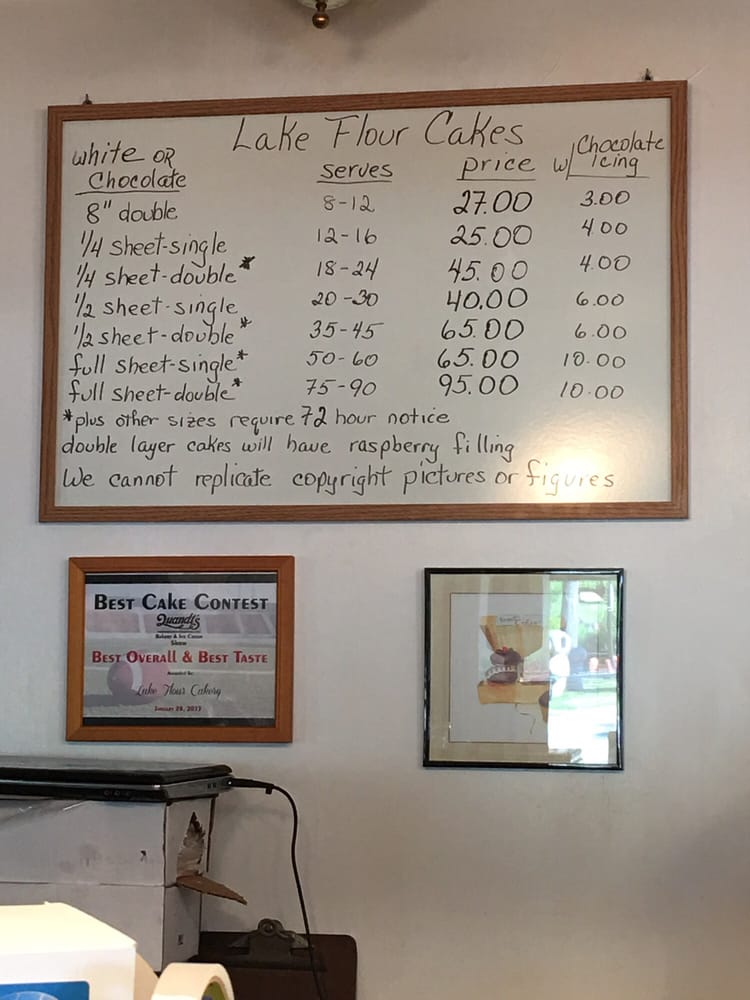 Lake Flour Cakes
white OR Chocolate serves price w/ Chocolate Icing
8" double 8-12 27.00 3.00
1/4 sheet-single 12-16 25.00 4.00
1/4 sheet-double* 18-24 45.00 4.00
1/2 sheet-single 20-30 40.00 6.00
1/2 sheet-double* 35-45 65.00 6.00
full sheet-single* 50-60 65.00 10.00
full sheet-double* 75-90 95.00 10.00
*plus other sizes require 72 hour notice
double layer cakes will have raspberry filling
We cannot replicate copyright pictures or figures
BEST CAKE CONTEST
Quandt's
Bakery & Ice Cream
Show
BEST OVERALL & BEST TASTE
Awarded To:
Lake Flour Cakery
JANUARY 28, 2017